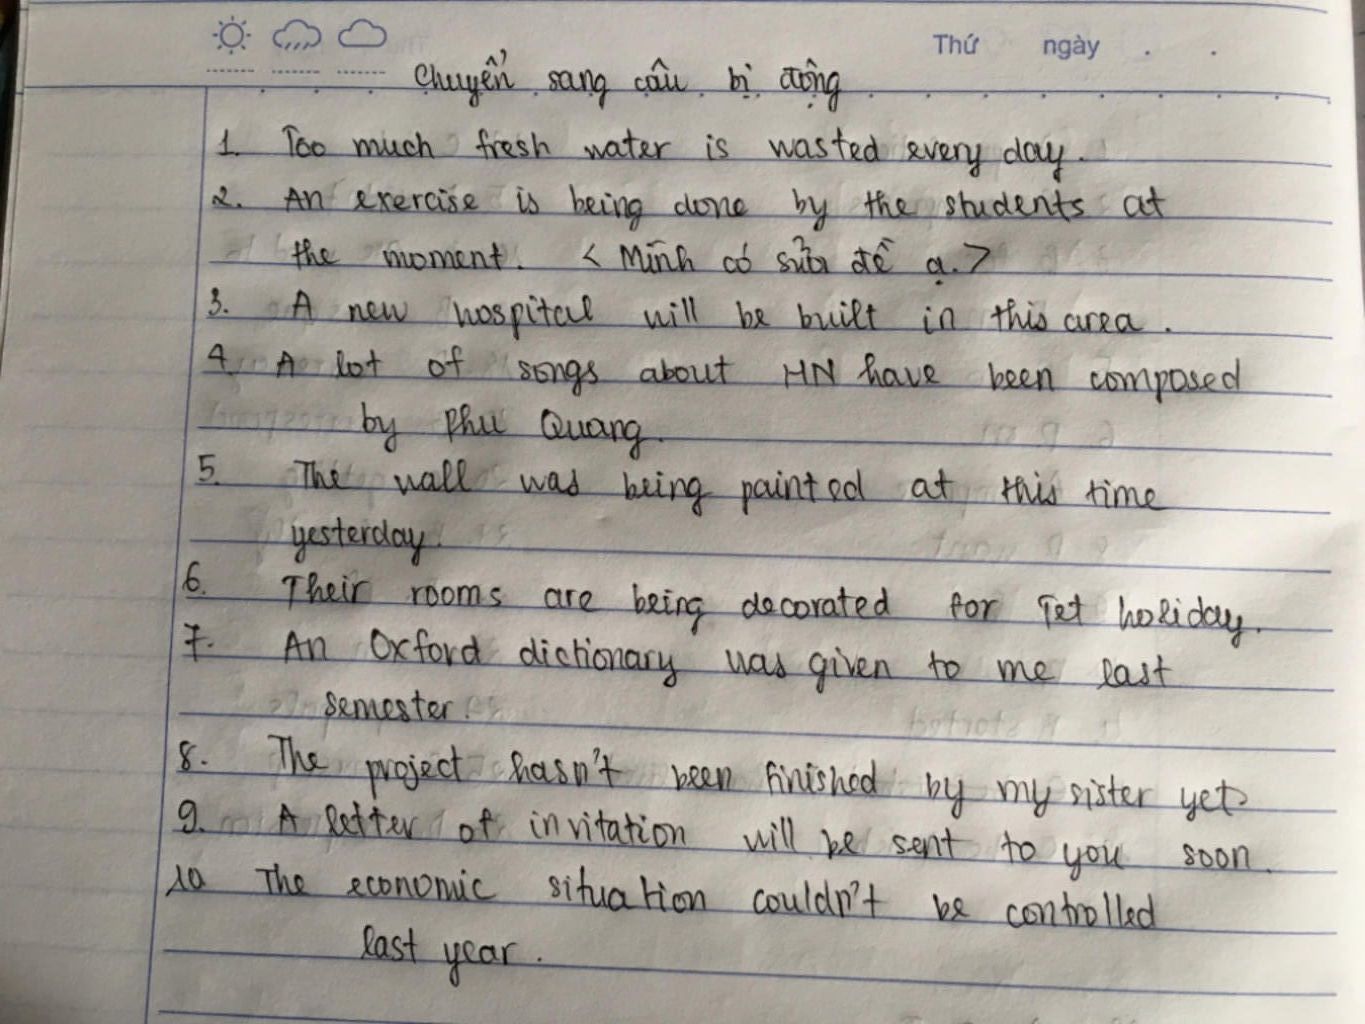 Thứ ngày . .
Chuyển sang câu bị động
1. Too much fresh water is wasted every day.
2. An exercise is being done by the students at
the moment. < Mình có sửa đề ạ. >
3. A new hospital will be built in this area.
4. A lot of songs about HN have been composed
by Phu Quang.
5. The wall was being painted at this time
yesterday.
6. Their rooms are being decorated for Tet holiday.
7. An Oxford dictionary was given to me last
semester.
8. The project hasn't been finished by my sister yet.
9. A letter of invitation will be sent to you soon.
10 The economic situation couldn't be controlled
last year.